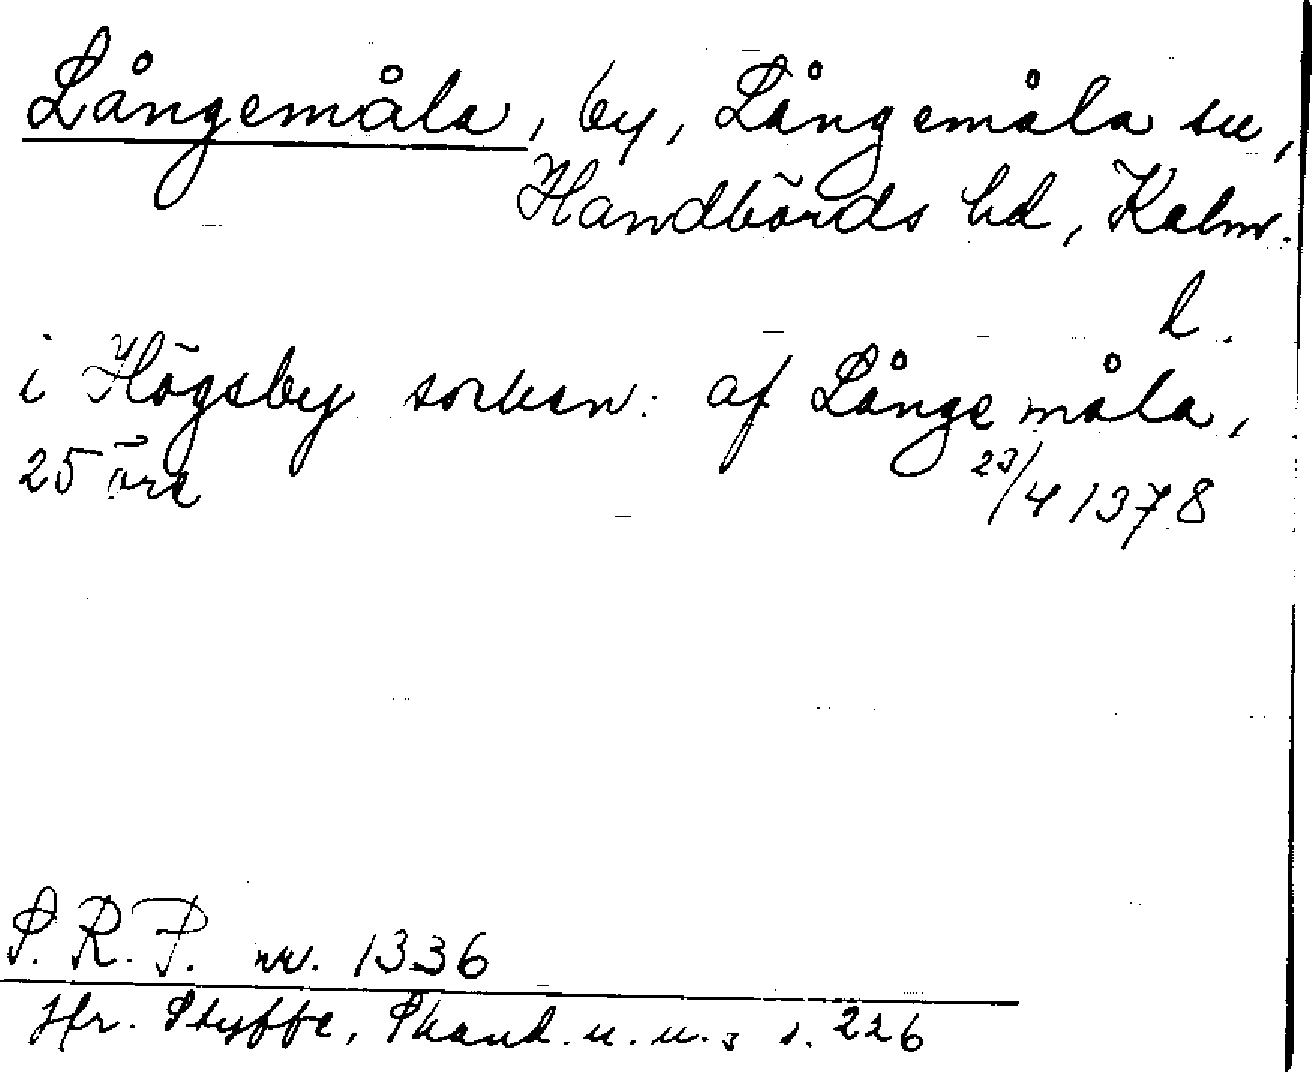 Långemåla, by, Långemåla sn,
Handbörds hd, Kalm.
l.
i Högsby sorken: af Långe måla,
25 öra 23/4 1378
S. R. P. nr. 1336
Jfr. Styffe, Skand. u. u. 3 s. 226